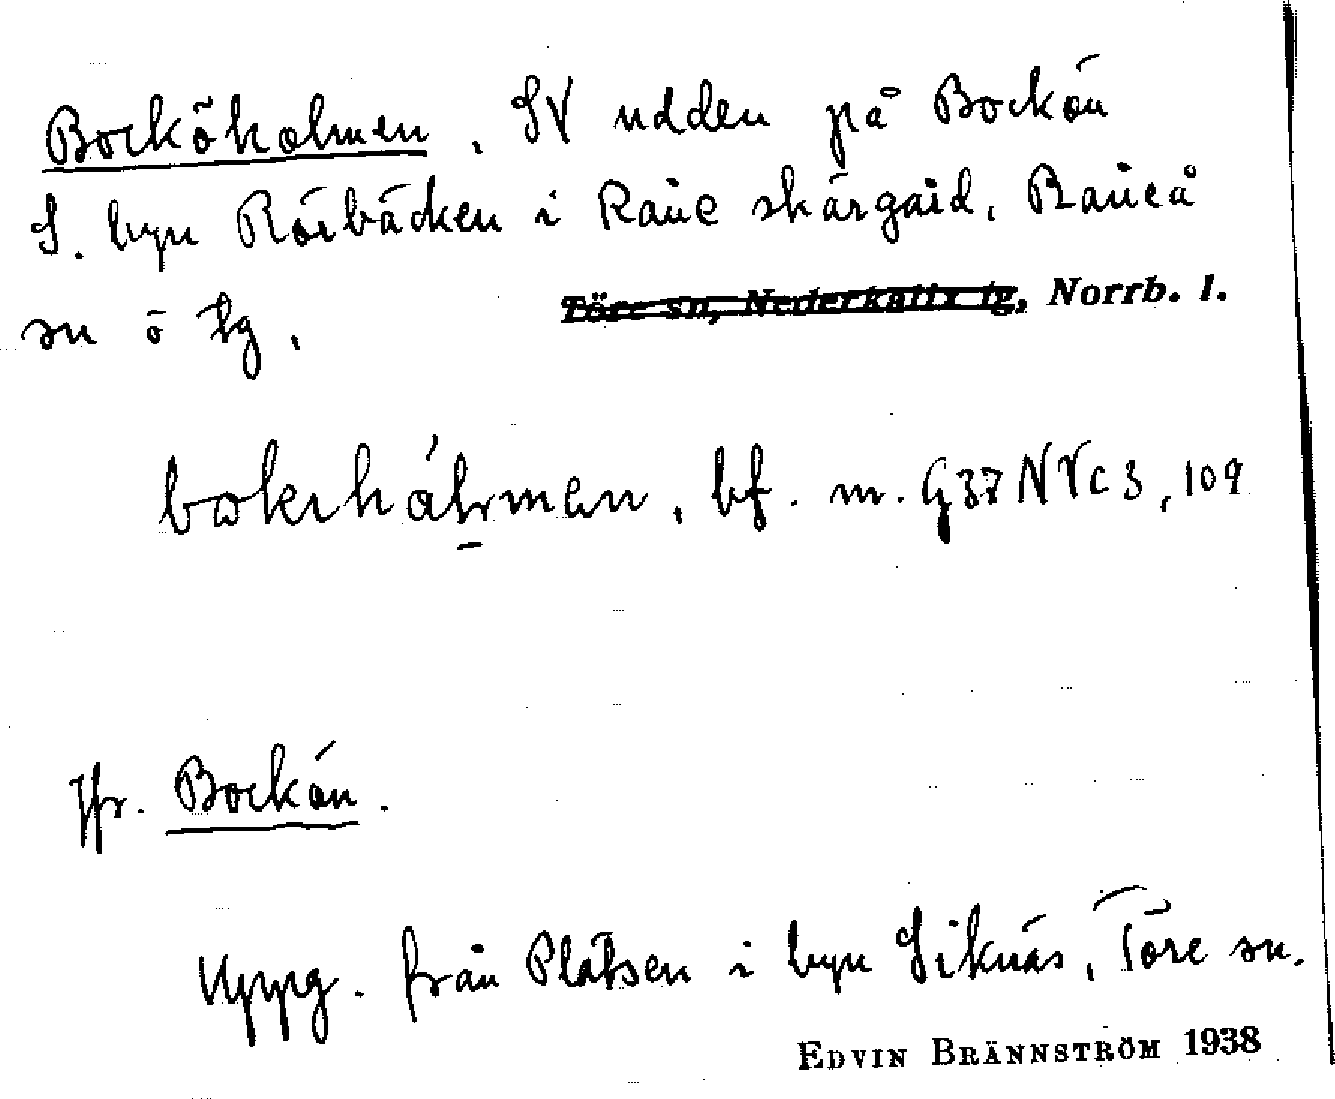 Bocköholmen. SV udden på Bockön
S. byn Rörbäcken i Råne skärgård, Råneå
sn o tg. Töre sn, Nederkalix tg, Norrb. l.
bf. m. G37NVc3, 109
Jfr. Bockön.
Uppg. från Plåtsen i byn Siknäs, Töre sn.
EDVIN BRÄNNSTRÖM 1938